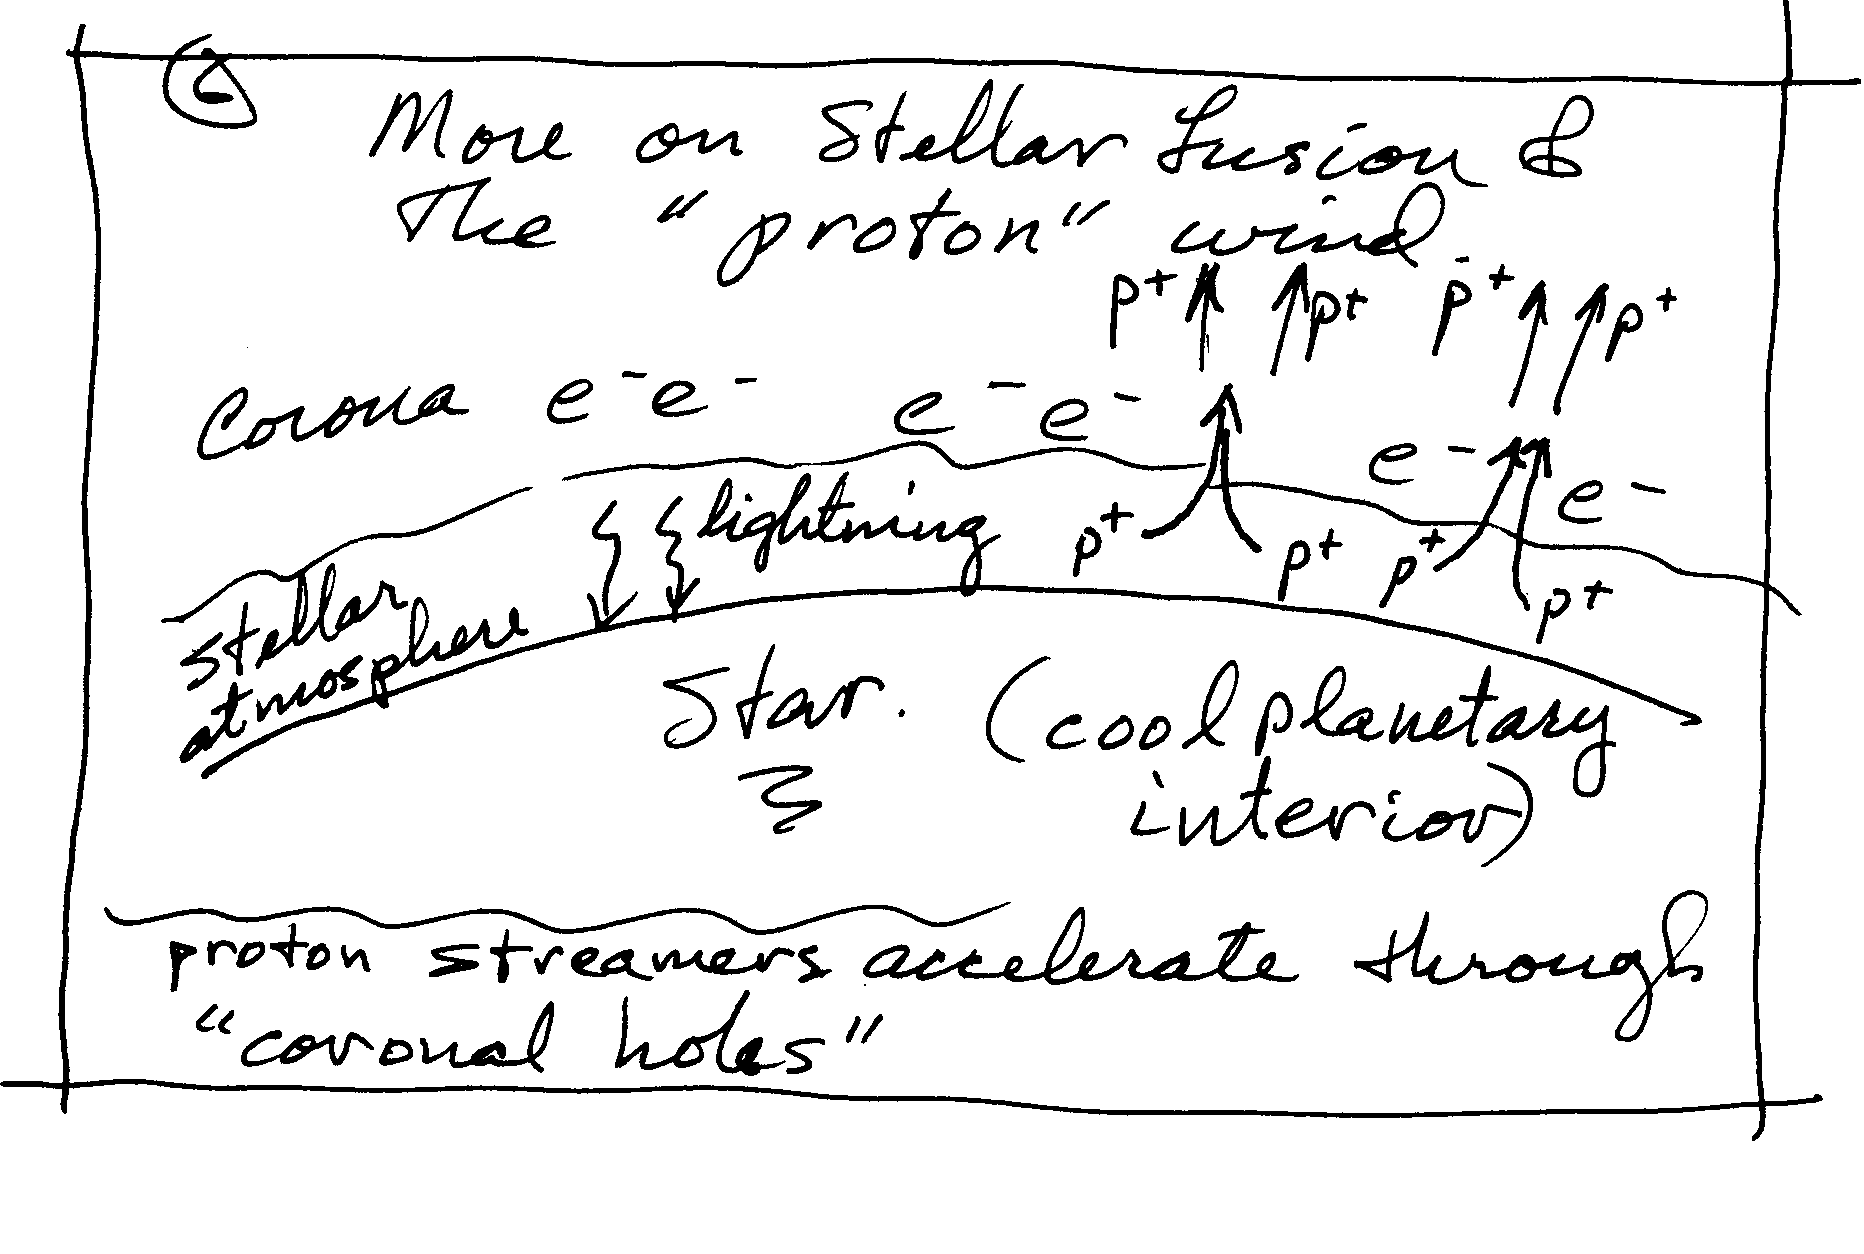 More on Stellar fusion &
the "proton" wind.
p+ p+ p+ p+
Corona e- e- e- e-
e- e-
lightning p+ p+ p+ p+
stellar
atmosphere
Star. (cool planetary
interior)
proton streamers accelerate through
"coronal holes"